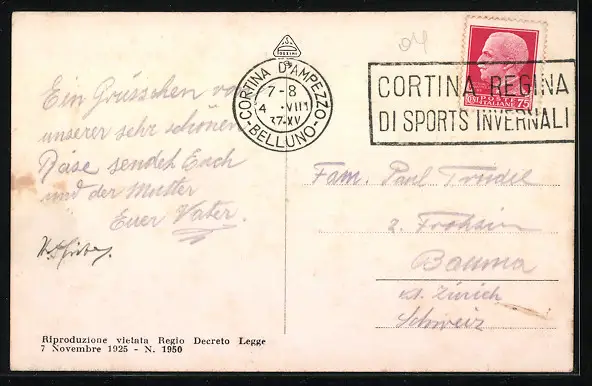 04
CORTINA D'AMPEZZO
7-8
4 · VIII
37·XV
·BELLUNO·
CORTINA REGINA
DI SPORTS INVERNALI
POSTE ITALIANE 75
Ein Grüsschen von
unserer sehr schönen
Reise sendet Euch
und der Mutter
Euer Vater.
Fam. Paul Trüdel
z. Frohsinn
Bauma
Kt. Zürich
Schweiz
Riproduzione vietata Regio Decreto Legge
7 Novembre 1925 - N. 1950